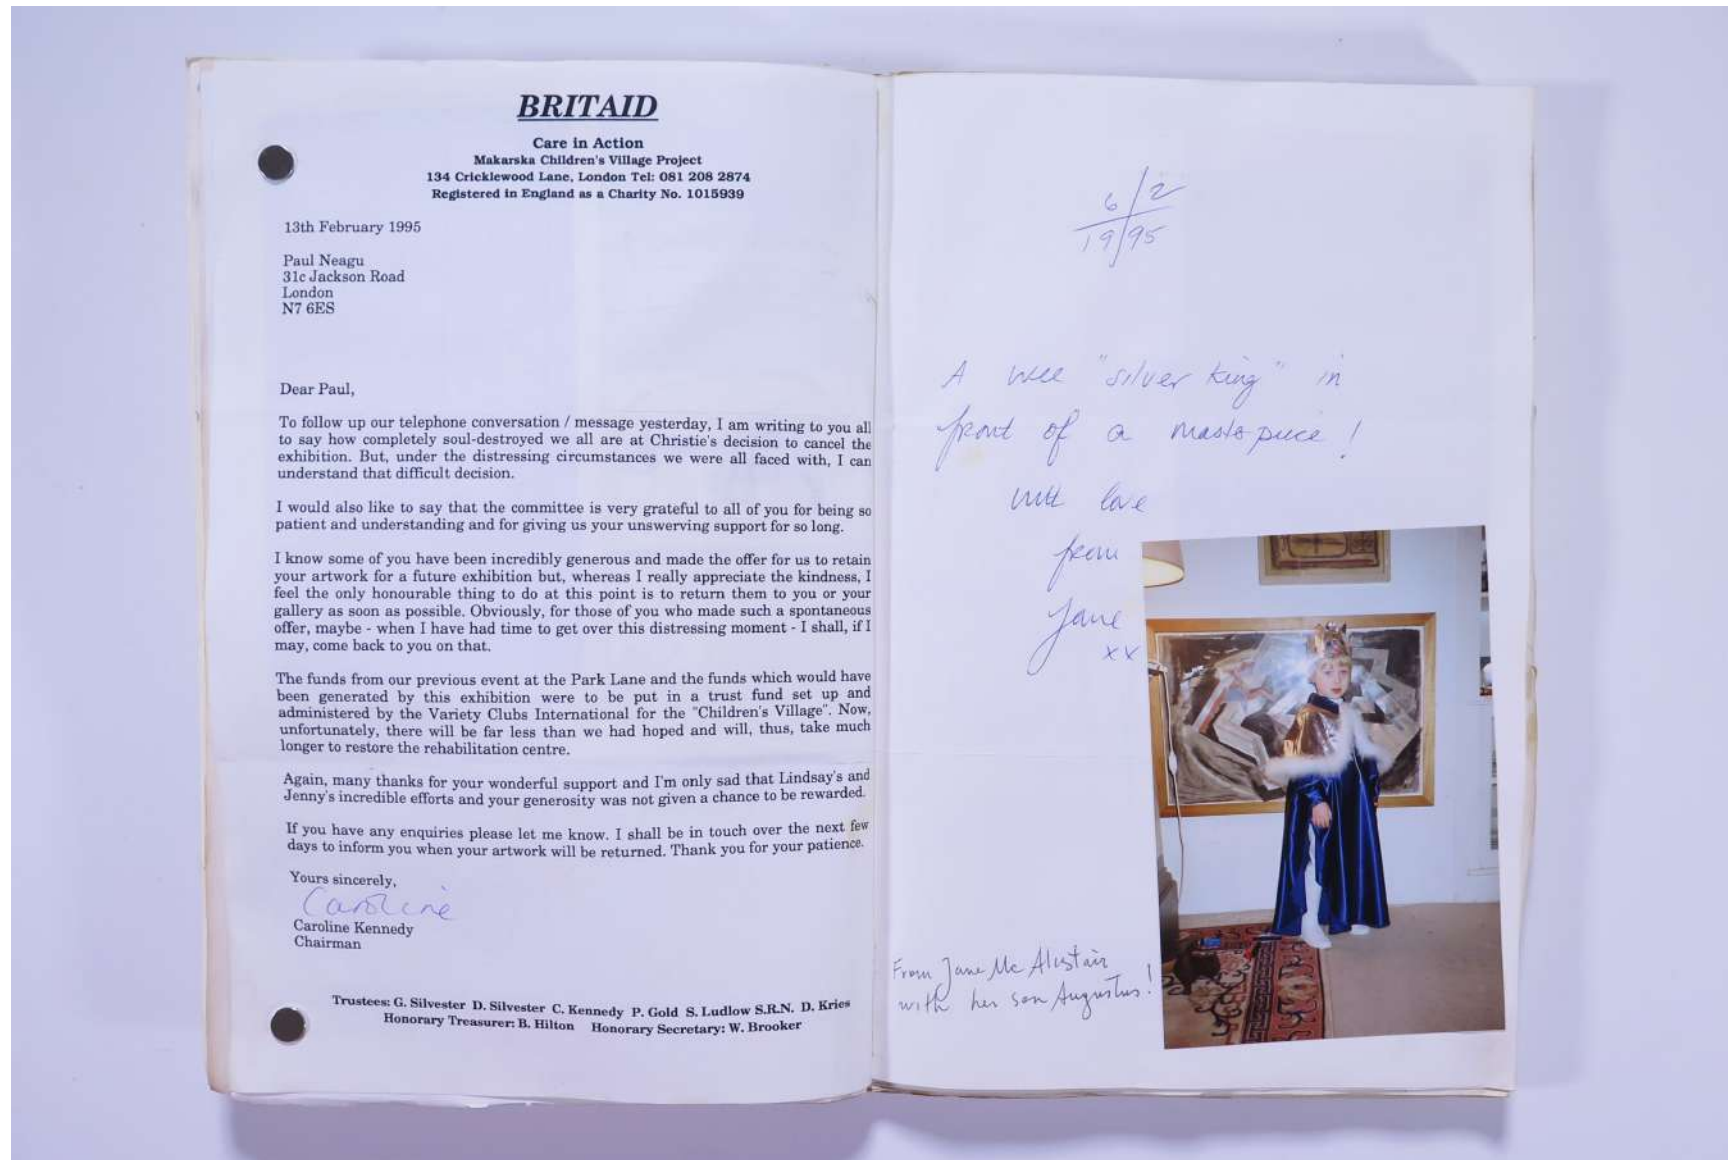 BRITAID
Care in Action
Makarska Children's Village Project
134 Cricklewood Lane, London Tel: 081 208 2874
Registered in England as a Charity No. 1015939
13th February 1995
Paul Neagu
31c Jackson Road
London
N7 6ES
Dear Paul,
To follow up our telephone conversation / message yesterday, I am writing to you all
to say how completely soul-destroyed we all are at Christie's decision to cancel the
exhibition. But, under the distressing circumstances we were all faced with, I can
understand that difficult decision.
I would also like to say that the committee is very grateful to all of you for being so
patient and understanding and for giving us your unswerving support for so long.
I know some of you have been incredibly generous and made the offer for us to retain
your artwork for a future exhibition but, whereas I really appreciate the kindness, I
feel the only honourable thing to do at this point is to return them to you or your
gallery as soon as possible. Obviously, for those of you who made such a spontaneous
offer, maybe - when I have had time to get over this distressing moment - I shall, if I
may, come back to you on that.
The funds from our previous event at the Park Lane and the funds which would have
been generated by this exhibition were to be put in a trust fund set up and
administered by the Variety Clubs International for the "Children's Village". Now,
unfortunately, there will be far less than we had hoped and will, thus, take much
longer to restore the rehabilitation centre.
Again, many thanks for your wonderful support and I'm only sad that Lindsay's and
Jenny's incredible efforts and your generosity was not given a chance to be rewarded.
If you have any enquiries please let me know. I shall be in touch over the next few
days to inform you when your artwork will be returned. Thank you for your patience.
Yours sincerely,
Caroline
Caroline Kennedy
Chairman
Trustees: G. Silvester D. Silvester C. Kennedy P. Gold S. Ludlow S.R.N. D. Kries
Honorary Treasurer: B. Hilton Honorary Secretary: W. Brooker
6/2
19/95
A wee "silver king" in
front of a masterpiece!
with love
from
Jane
xx
From Jane Mc Alistair
with her son Augustus!